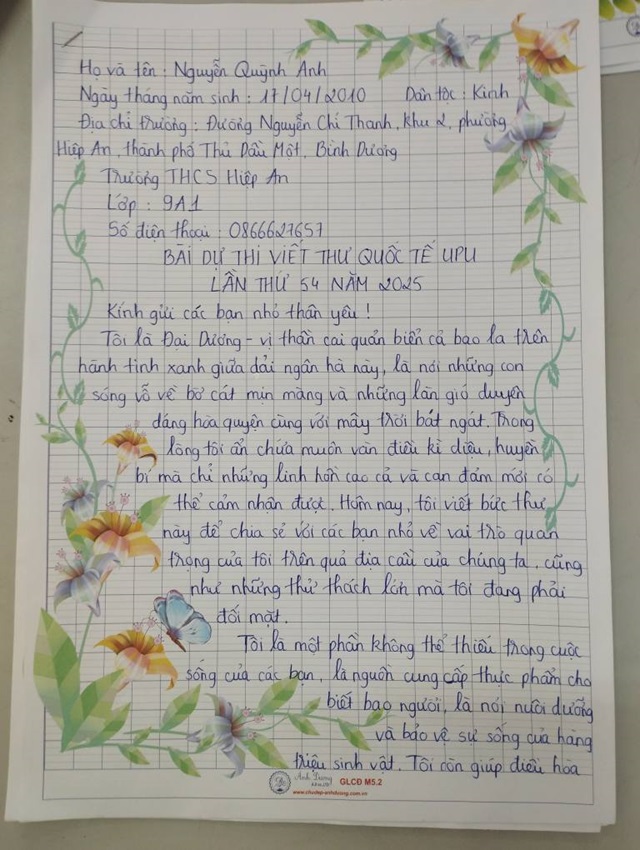 Họ và tên : Nguyễn Quỳnh Anh
Ngày tháng năm sinh : 17/04/2010 Dân tộc : Kinh
Địa chỉ trường : Đường Nguyễn Chí Thanh, khu 2, phường
Hiệp An, thành phố Thủ Dầu Một, Bình Dương
Trường THCS Hiệp An
Lớp : 9A1
Số điện thoại : 0866627657
BÀI DỰ THI VIẾT THƯ QUỐC TẾ UPU
LẦN THỨ 54 NĂM 2025
Kính gửi các bạn nhỏ thân yêu !
Tôi là Đại Dương - vị thần cai quản biển cả bao la trên
hành tinh xanh giữa dải ngân hà này, là nơi những con
sóng vỗ về bờ cát mịn màng và những làn gió duyên
dáng hòa quyện cùng với mây trời bát ngát. Trong
lòng tôi ẩn chứa muôn vàn điều kì diệu, huyền
bí mà chỉ những linh hồn cao cả và can đảm mới có
thể cảm nhận được. Hôm nay, tôi viết bức thư
này để chia sẻ với các bạn nhỏ về vai trò quan
trọng của tôi trên quả địa cầu của chúng ta, cũng
như những thử thách lớn mà tôi đang phải
đối mặt.
Tôi là một phần không thể thiếu trong cuộc
sống của các bạn, là nguồn cung cấp thực phẩm cho
biết bao người, là nơi nuôi dưỡng
và bảo vệ sự sống của hàng
triệu sinh vật. Tôi còn giúp điều hòa
Anh Dương
GLCĐ M5.2
www.chudep-anhduong.com.vn